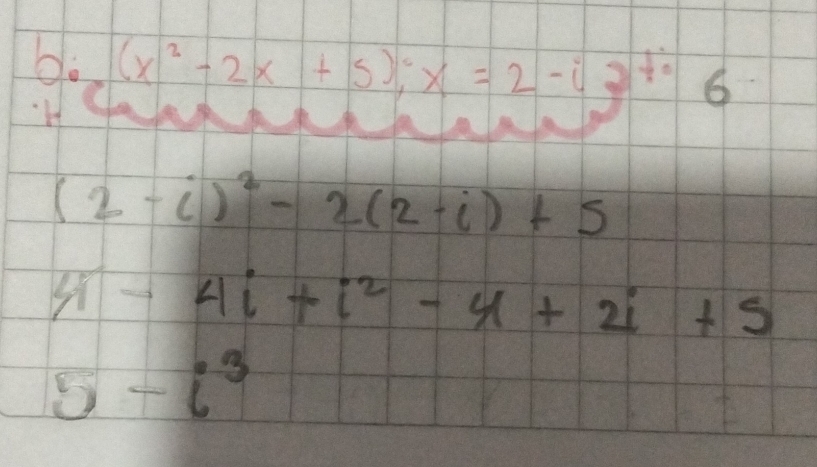 b. (x² - 2x + 5); x = 2 - i 6
(2 - i)² - 2(2 - i) + 5
4 - 4i + i² - 4 + 2i + 5
5 - i³